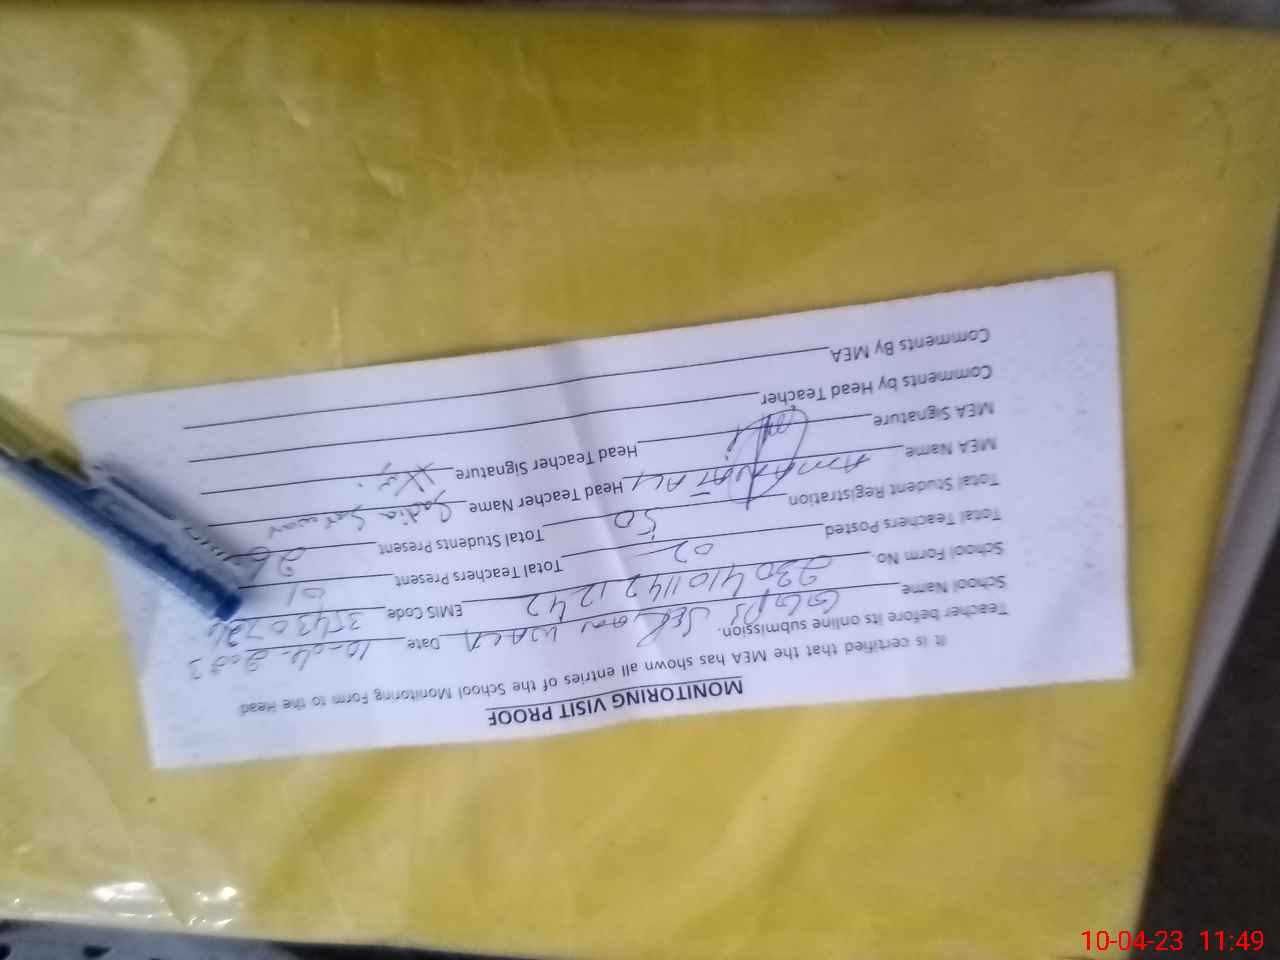 MONITORING VISIT PROOF
It is certified that the MEA has shown all entries of the School Monitoring Form to the Head
Teacher before its online submission.
School Name GGPS Date 10-04-2023
School Form No. 23041011421242 EMIS Code 354307
Total Teachers Posted 02 Total Teachers Present 01
Total Student Registration 50 Total Students Present 26
MEA Name AMANAT ALI Head Teacher Name Sadia
MEA Signature Head Teacher Signature
Comments by Head Teacher
Comments By MEA
10-04-23 11:49